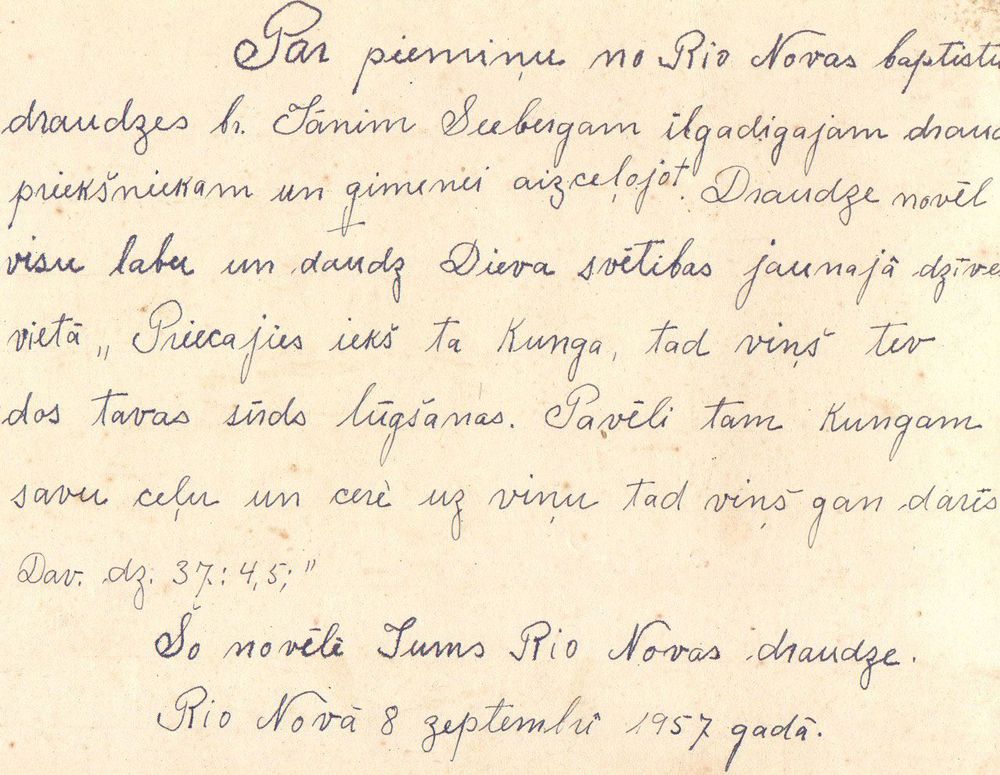 Par piemiņu no Rio Novas baptistu
draudzes br. Jānim Seebergam ilgadigajam draud
priekšniekam un ģimenei aizceļojot. Draudze novēl
visu labu un daudz Dieva svētibas jaunajā dzīves
vietā „ Priecajies iekš ta Kunga, tad viņš tev
dos tavas sirds lūgšanas. Pavēli tam Kungam
savu ceļu un cerè uz viņu tad viņš gan darīs
Dav. dz. 37.: 4,5;"
Šo novēlē Jums Rio Novas draudze.
Rio Novā 8 zeptembrī 1957 gadā.